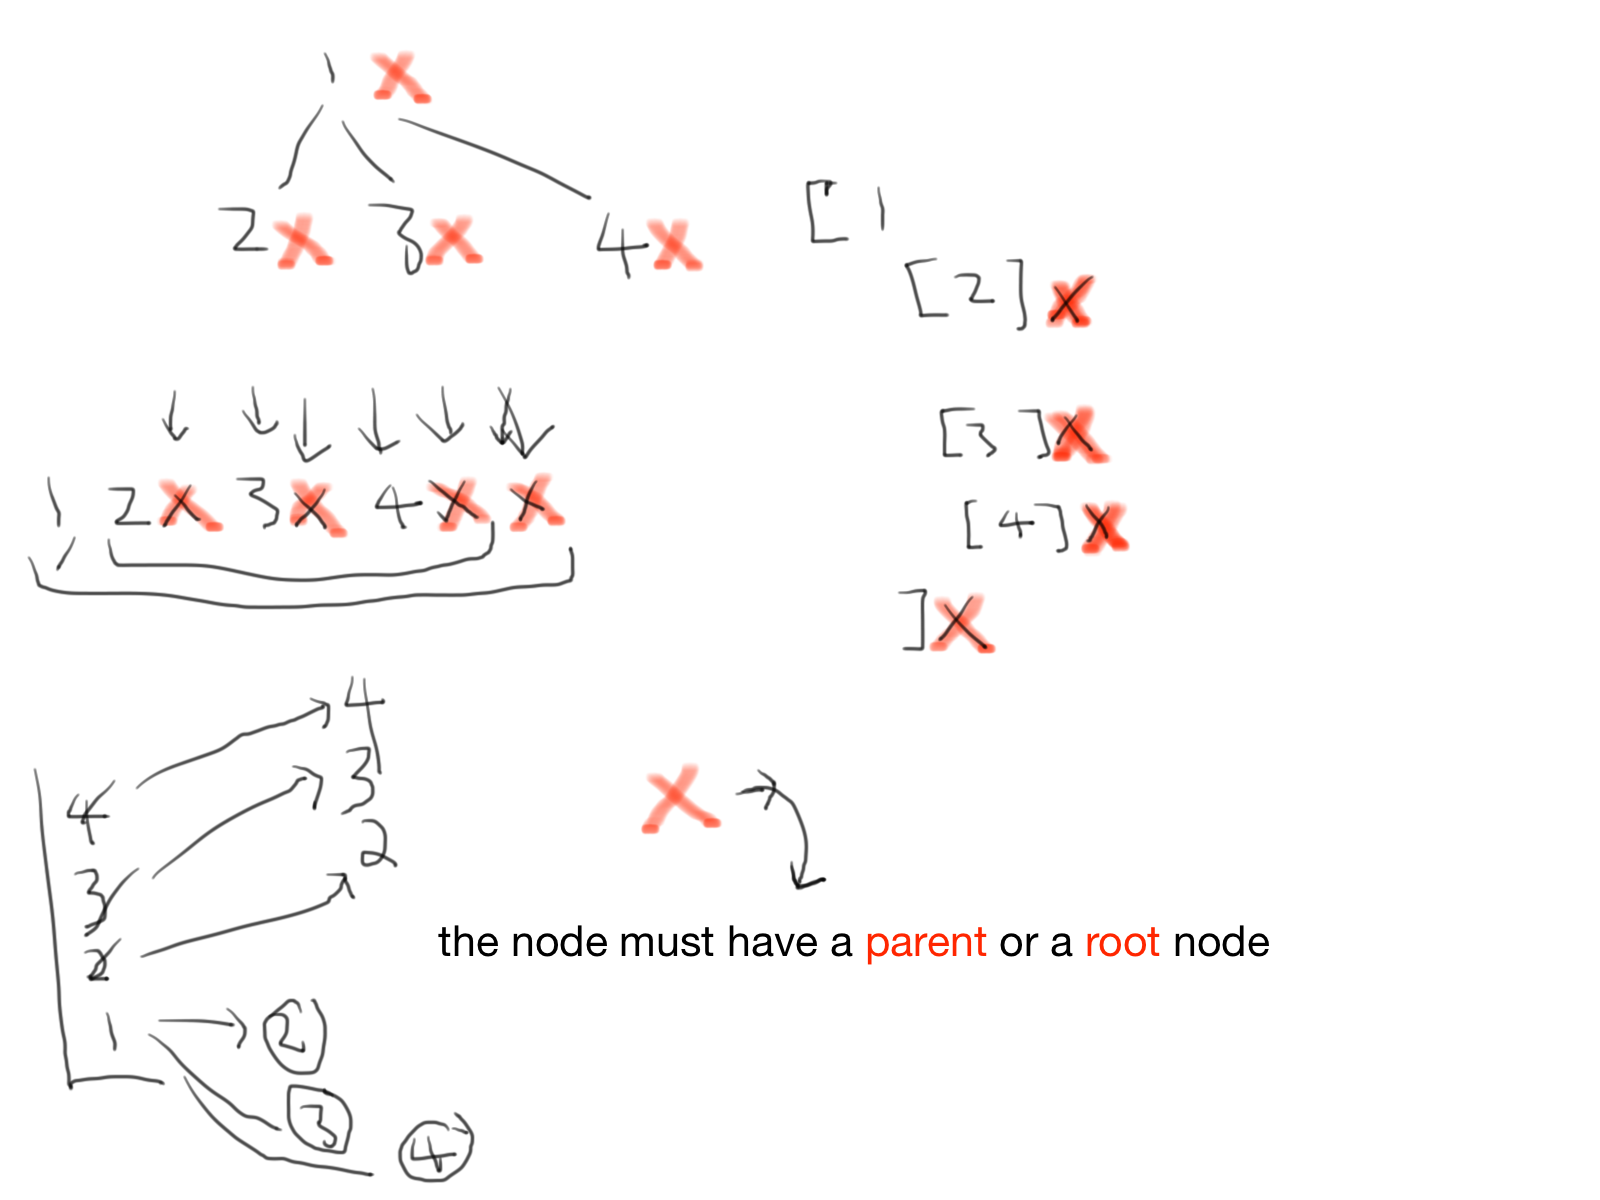 1 X
2X 3X 4X
[ 1
[2] X
[3] X
[4] X
] X
1 2X 3X 4X X
4
3
2
4
3
2
1
2
3
4
X
the node must have a parent or a root node